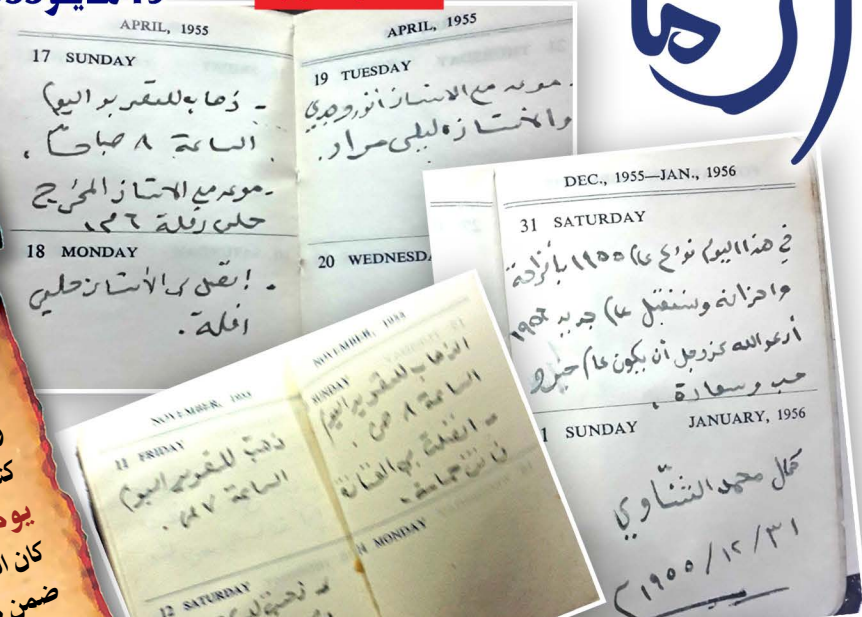 19 مايو
APRIL, 1955
17 SUNDAY
- ذهاب للتصوير اليوم
الساعة ٨ صباحاً .
- موعد مع الاستاذ المخرج
حلمى رفلة ٦ م .
18 MONDAY
- إتصل بى الأستاذ حلمى
رفلة .
APRIL, 1955
19 TUESDAY
- موعد مع الاستاذ أنور وجدي
والاستاذه ليلى مراد .
20 WEDNESD
DEC., 1955—JAN., 1956
31 SATURDAY
في هذا اليوم نودع عام ١٩٥٥ بأفراحه
واحزانه ونستقبل عام جديد ١٩٥٦
أدعو الله عز وجل أن يكون عام خير و
حب وسعادة .
1 SUNDAY JANUARY, 1956
كمال محمد الشناوي
١٩٥٥/١٢/٣١ م
NOVEMBER,
11 FRIDAY
ذهبت للتصوير اليوم
الساعة ٧ م .
12 SATURDAY
NOVEMBER,
SUNDAY
الذهاب للتصوير اليوم
الساعة ٨ ص .
- اتصلت بى الفنانة
فاتن حمامة .
14 MONDAY
يوم
كان
ضمن